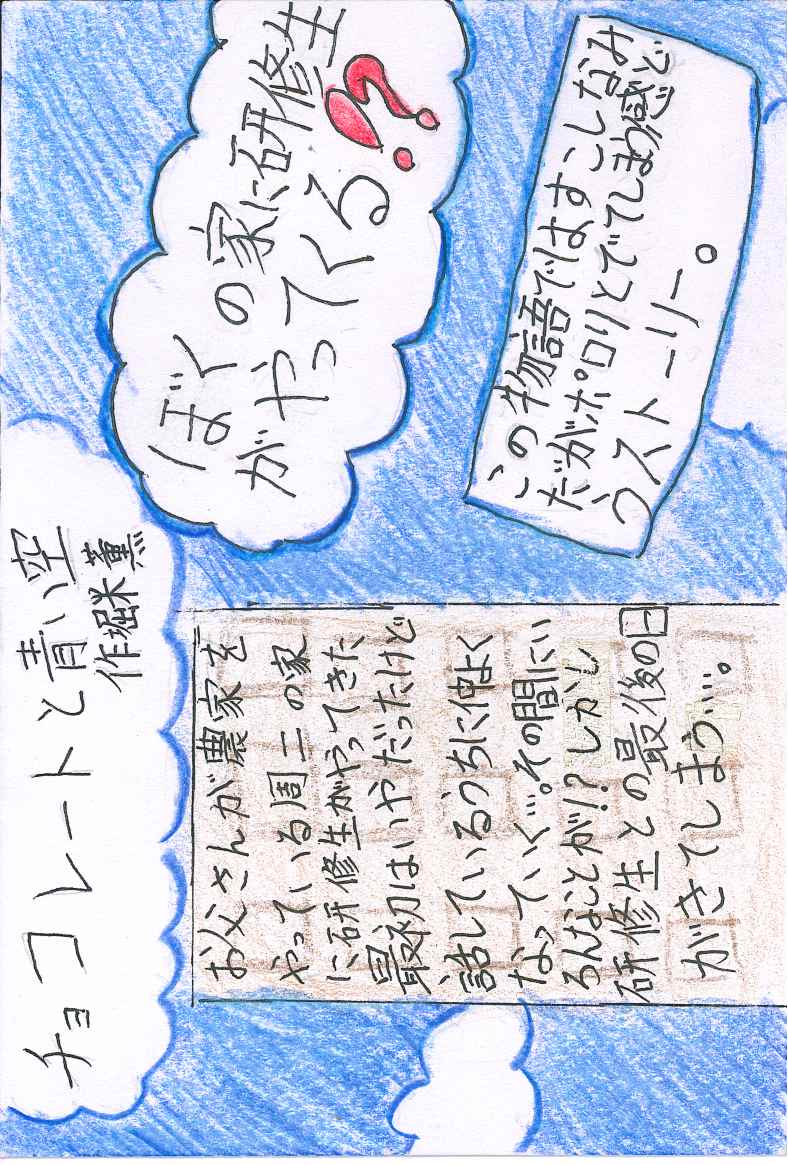 チョコレートと青い空
作堀米薫
ぼくの家に研修生
がやってくる??
お父さんが農家を
やっている周二の家
に研修生がやってきた
最初はいやだったけど
話しているうちに仲よく
なっていく…。その間にい
ろんなことが!?しかし
研修生との最後の日
がきてしまう…。
この物語ではすこしなみ
だがポロリとでてしまう感ど
うストーリー。